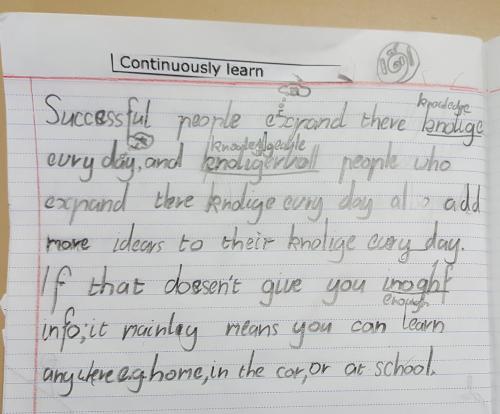 Continuously learn
knowledge
Successful people expand there knolige
knowledgeable
evry day, and knoligerball people who
expand there knolige evry day also add
more idears to their knolige evry day.
If that doesen't give you inoghf
enough
info,it mainley means you can learn
anywhere e.g home, in the car, or at school.